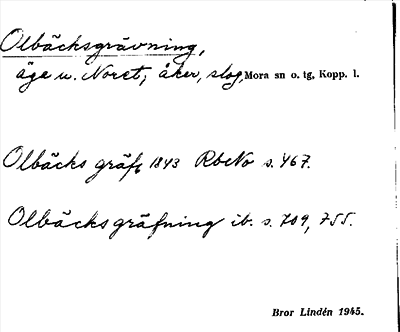 Olbäcksgrävning,
äge u. Noret; åker, slog, Mora sn o. tg, Kopp. l.
Olbäcks gräft 1843 RbNo s. 467.
Olbäcksgräfning ib. s. 709, 755.
Bror Lindén 1945.